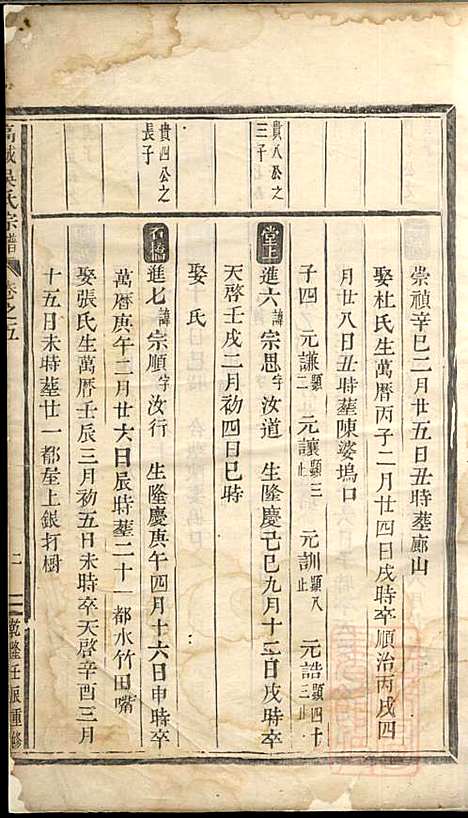 崇禎辛巳二月廿五日丑時葬廊山
娶杜氏生萬曆丙子二月廿四日戌時卒順治丙戌四
月廿八日丑時葬陳婆塢口
子四 元謙顯二 元讓顯三止 元訓顯八止 元誥顯四十三止
貴八公之三子
堂上
進六諱宗思字汝道 生隆慶己巳九月十二日戌時卒
天啓壬戌二月初四日巳時
娶 氏
貴四公之長子
石橋
進七諱宗順字汝行 生隆慶庚午四月十六日申時卒
萬曆庚午二月廿六日辰時葬二十一都水竹田嘴
娶張氏生萬曆壬辰三月初五日未時卒天啓辛酉三月
十五日未時葬廿一都屋上銀打櫥
高城吳氏宗譜
卷之五
乾隆壬辰重修